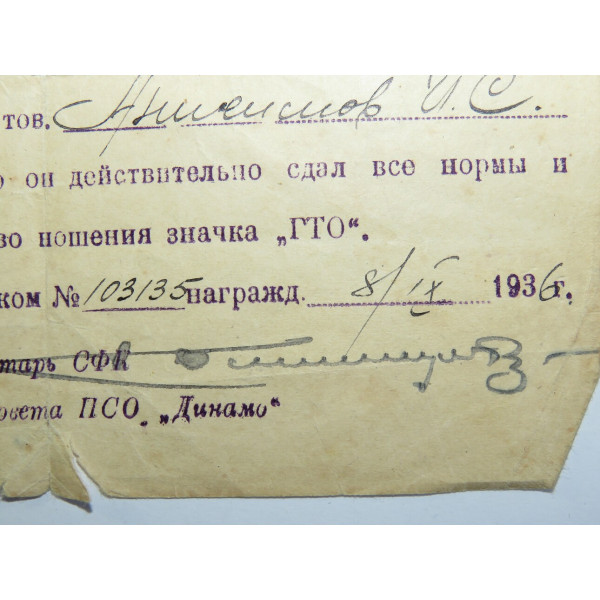 тов. Анисимов И.С.
о он действительно сдал все нормы и
во ношения значка „ГТО“.
ком № 103135 награжд. 8/IX 1936г.
тарь СФК
овета ПСО „Динамо“